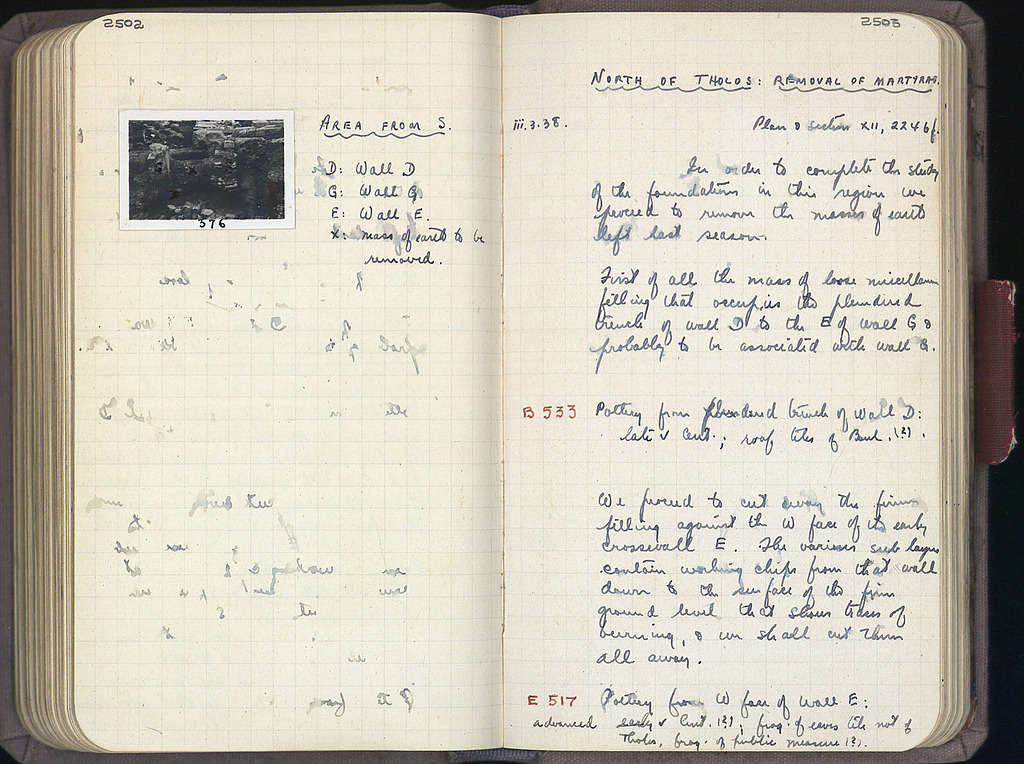 2502
AREA FROM S.
D: Wall D
G: Wall G.
E: Wall E.
X: mass of earth to be
removed.
G X E
D
376
2503
NORTH OF THOLOS: REMOVAL OF MARTYRAS.
iii.3.38.
Plan & section XII, 2246f.
In order to complete the study
of the foundations in this region we
proceed to remove the masses of earth
left last season.
First of all the mass of loose miscellan
filling that occupies the plundered
trench of wall D to the E of wall G &
probably to be associated with wall G.
B 533 Pottery from plundered trench of Wall D:
late v Cent.; roof tiles of (?).
We proceed to cut away the firmer
filling against the W face of the early
crosswall E. The various sub layers
contain working chips from that wall
down to the surface of the firm
ground level that shows traces of
burning, & we shall cut them
all away.
E 517 Pottery from W face of Wall E:
advanced early v Cent. (?); frag. of eaves tile not of
Tholos, frag. of public measure (?).